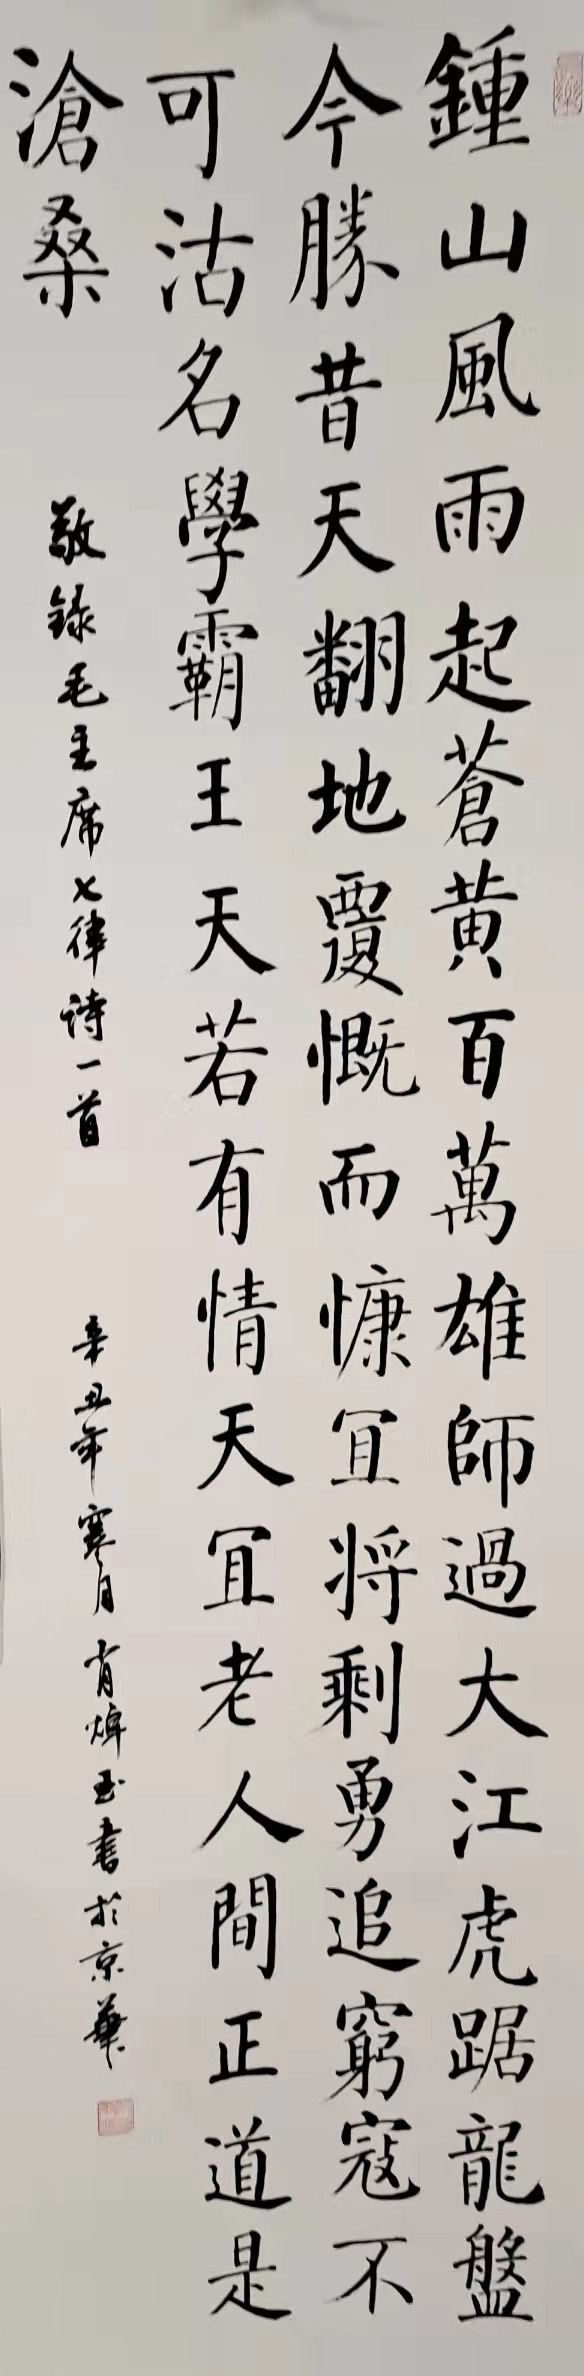 鍾山風雨起蒼黃百萬雄師過大江虎踞龍盤
今勝昔天翻地覆慨而慷宜將剩勇追窮寇不
可沽名學霸王天若有情天宜老人間正道是
滄桑
敬録毛主席七律诗一首
辛丑年寒月肖焯玉書於京華